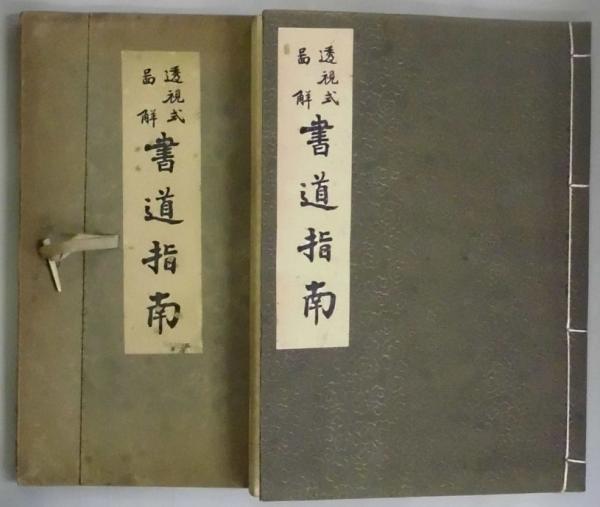 透視式
啚解
書道指南
透視式
啚解
書道指南